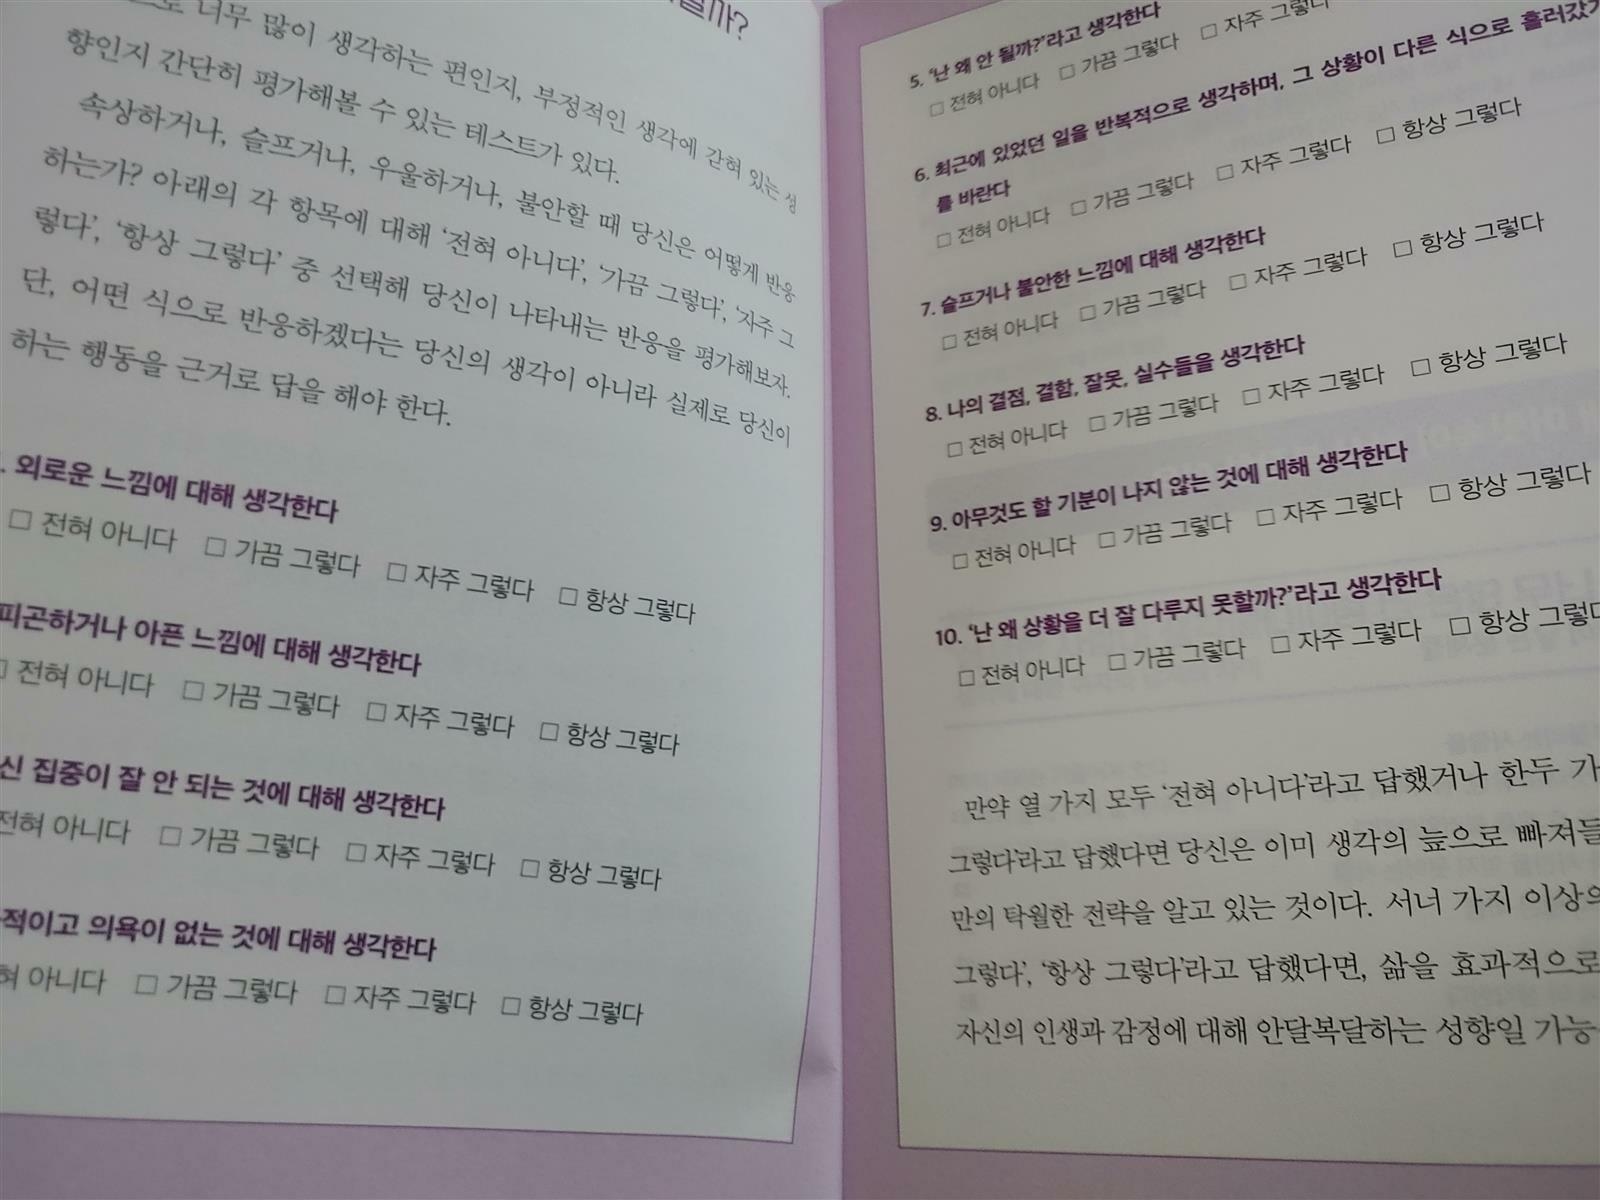 너무 많이 생각하는 편인지, 부정적인 생각에 갇혀 있는 성
향인지 간단히 평가해볼 수 있는 테스트가 있다.
속상하거나, 슬프거나, 우울하거나, 불안할 때 당신은 어떻게 반응
하는가? 아래의 각 항목에 대해 ‘전혀 아니다’, ‘가끔 그렇다’, ‘자주 그
렇다’, ‘항상 그렇다’ 중 선택해 당신이 나타내는 반응을 평가해보자.
단, 어떤 식으로 반응하겠다는 당신의 생각이 아니라 실제로 당신이
하는 행동을 근거로 답을 해야 한다.
. 외로운 느낌에 대해 생각한다
□ 전혀 아니다 □ 가끔 그렇다 □ 자주 그렇다 □ 항상 그렇다
피곤하거나 아픈 느낌에 대해 생각한다
□ 전혀 아니다 □ 가끔 그렇다 □ 자주 그렇다 □ 항상 그렇다
신 집중이 잘 안 되는 것에 대해 생각한다
전혀 아니다 □ 가끔 그렇다 □ 자주 그렇다 □ 항상 그렇다
적이고 의욕이 없는 것에 대해 생각한다
혀 아니다 □ 가끔 그렇다 □ 자주 그렇다 □ 항상 그렇다
5. ‘난 왜 안 될까?’라고 생각한다
□ 전혀 아니다 □ 가끔 그렇다 □ 자주 그렇다
6. 최근에 있었던 일을 반복적으로 생각하며, 그 상황이 다른 식으로 흘러갔기
를 바란다
□ 전혀 아니다 □ 가끔 그렇다 □ 자주 그렇다 □ 항상 그렇다
7. 슬프거나 불안한 느낌에 대해 생각한다
□ 전혀 아니다 □ 가끔 그렇다 □ 자주 그렇다 □ 항상 그렇다
8. 나의 결점, 결함, 잘못, 실수들을 생각한다
□ 전혀 아니다 □ 가끔 그렇다 □ 자주 그렇다 □ 항상 그렇다
9. 아무것도 할 기분이 나지 않는 것에 대해 생각한다
□ 전혀 아니다 □ 가끔 그렇다 □ 자주 그렇다 □ 항상 그렇다
10. ‘난 왜 상황을 더 잘 다루지 못할까?’라고 생각한다
□ 전혀 아니다 □ 가끔 그렇다 □ 자주 그렇다 □ 항상 그렇다
만약 열 가지 모두 ‘전혀 아니다’라고 답했거나 한두 가
그렇다’라고 답했다면 당신은 이미 생각의 늪으로 빠져들
만의 탁월한 전략을 알고 있는 것이다. 서너 가지 이상의
그렇다’, ‘항상 그렇다’라고 답했다면, 삶을 효과적으로
자신의 인생과 감정에 대해 안달복달하는 성향일 가능